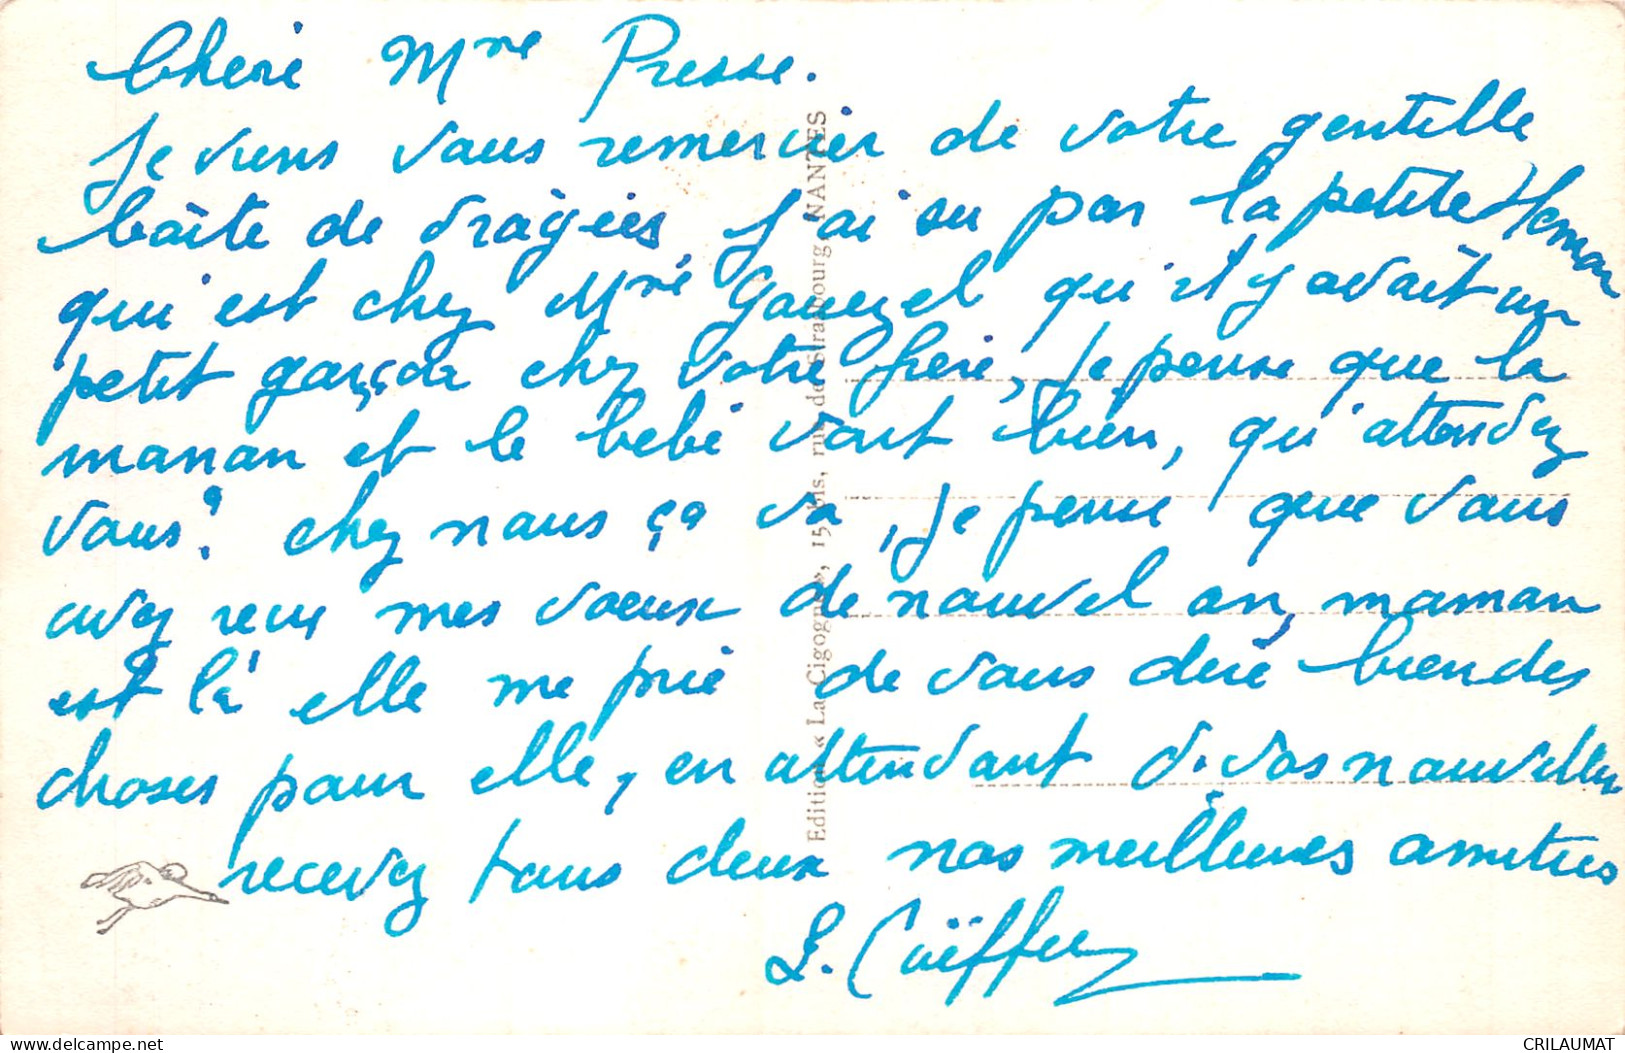 Chère Mme Presse.
Je viens vous remercier de votre gentille
boîte de dragées, j'ai su par la petite
qui est chez Mme Gauezel qu'il y avait un
petit garçon chez votre frère, je pense que la
manan et le bébé vont bien, qu'attendez
vous? chez nous ça va, je pense que vous
avez reçu mes voeux de nouvel an, maman
est là elle me prie de vous dire bien des
choses pour elle, en attendant d. vos nouvelles
recevez tous deux nos meilleures amitiés
Edition « La Cigogne », 15 bis, rue de Strasbourg NANTES
delcampe.net
CRILAUMAT